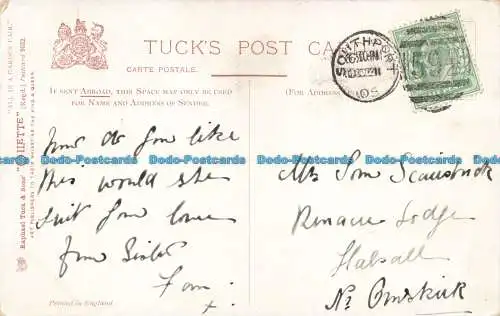 TUCK'S POST CA
CARTE POSTALE.
IF SENT ABROAD, THIS SPACE MAY ONLY BE USED
FOR NAME AND ADDRESS OF SENDER.
(FOR ADDRESS
SOUTHPORT
05
"ALL IN A GARDEN FAIR."
Raphael Tuck & Sons' "OILETTE" (Regd.) Postcard
ART PUBLISHERS TO THEIR MAJESTIES THE KING & QUEEN.
how do you like
this would she
suit you love
from Sister
Mr Tom
Lodge
Halsall
Nr Ormskirk
Printed in England
Dodo-Postcards Dodo-Postcards Dodo-Postcards Dodo-Postcards Dodo-Postcards